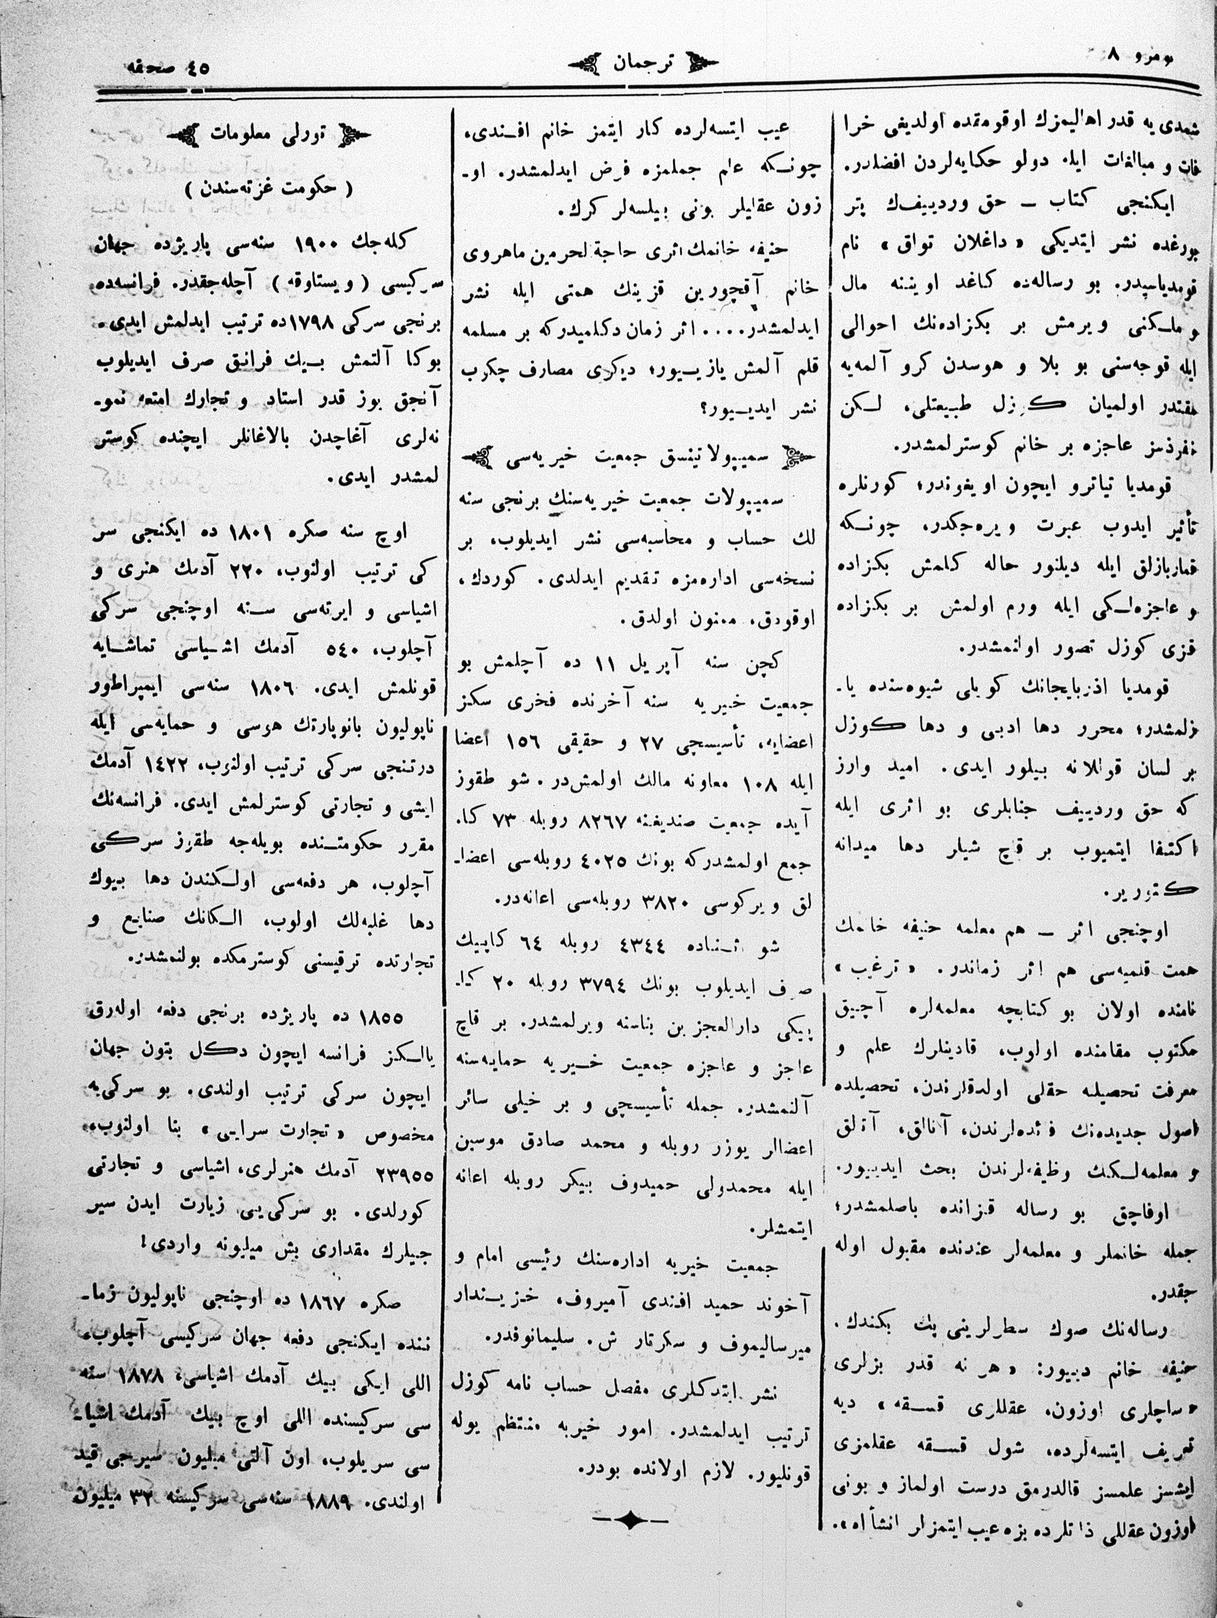 نومرو ٨
ترجمان
٤٥ صحفه
شمدی‌یه قدر اهالیمزك اوقومقده اولدیغی خرا
فات و مبالغات ایله دولو حکایه‌لردن افضلدر.
ایکنجی کتاب — حق وردییف‌ك پتر
بورغده نشر ایتدیکی «داغلان تواق» نام
قومدیاسیدر. بو رساله‌ده کاغد اویننه مال
و ملکنی ویرمش بر بکزاده‌نك احوالی
ایله قوجه‌سنی بو بلا و هوسدن کرو آلمه‌یه
مقتدر اولمیان کوزل طبیعتلی، لکن
نفوذسز عاجزه بر خانم کوسترلمشدر.
قومدیا تیاترو ایچون اویغوندر؛ کورنلره
تأثیر ایدوب عبرت ویره‌جکدر، چونکه
قماربازلق ایله دیلنور حاله کلمش بکزاده
و عاجزه‌لکی ایله ورم اولمش بر بکزاده
قزی کوزل تصور اولنمشدر.
قومدیا اذربایجانك کویلی شیوه‌سنده یا-
زلمشدر؛ محرر دها ادبی و دها کوزل
بر لسان قوللانه بیلور ایدی. امید وارز
که حق وردییف جنابلری بو اثری ایله
اکتفا ایتمیوب بر قاچ شیلر دها میدانه
کتوریر.
اوچنجی اثر — هم معلمه حنیفه خانمك
همت قلمیه‌سی هم اثر زماندر. «ترغیب»
نامنده اولان بو کتابچه معلمه‌لره آچیق
مکتوب مقامنده اولوب، قادینلرك علم و
معرفت تحصیله حقلی اولدقلرندن، تحصیلده
اصول جدیده‌نك فائده‌لرندن، آنالق، آتالق
و معلمه‌لکك وظیفه‌لرندن بحث ایدییور.
اوفاچق بو رساله قزانده باصلمشدر؛
جمله خانملر و معلمه‌لر عندنده مقبول اوله
جقدر.
رساله‌نك صوك سطرلرینی پك بکندك.
حنیفه خانم دییور: «هر نه قدر بزلری
«ساچلری اوزون، عقللری قسقه» دیه
تعریف ایتسه‌لرده، شول قسقه عقلمزی
ایشسز علمسز قالدرمق درست اولماز و بونی
اوزون عقللی ذاتلرده بزه عیب ایتمزلر انشأاه».
عیب ایتسه‌لرده کار ایتمز خانم افندی،
چونکه علم جمله‌مزه فرض ایدلمشدر. او-
زون عقللیلر بونی بیلسه‌لر کرك.
حنیفه خانمك اثری حاجة‌لحرمین ماهروی
خانم آقچورین قزینك همتی ایله نشر
ایدلمشدر.... اثر زمان دکلمیدرکه بر مسلمه
قلم آلمش یازییور؛ دیکری مصارف چکرب
نشر ایدییور؟
سمیپولاتینسق جمعیت خیریه‌سی
سمیپولات جمعیت خیریه‌سنك برنجی سنه
لك حساب و محاسبه‌سی نشر ایدیلوب، بر
نسخه‌سی اداره‌مزه تقدیم ایدلدی. کوردك،
اوقودق، ممنون اولدق.
کچن سنه آپریل ١١ ده آچلمش بو
جمعیت خیریه سنه آخرنده فخری سکز
اعضایه، تأسیسچی ٢٧ و حقیقی ١٥٦ اعضا
ایله ١٠٨ معاونه مالك اولمش‌در. شو طقوز
آیده جمعیت صندیغنه ٨٢٦٧ روبله ٧٣ کا.
جمع اولمشدرکه بونك ٤٠٢٥ روبله‌سی اعضا-
لق ویرکوسی ٣٨٢٠ روبله‌سی اعانه‌در.
شو اثناده ٤٣٤٤ روبله ٦٤ کاپیك
صرف ایدیلوب بونك ٣٧٩٤ روبله ٢٠ کا-
پیکی دارالعجز بن بناسنه ویرلمشدر. بر قاچ
عاجز و عاجزه جمعیت خیریه حمایه‌سنه
آلنمشدر. جمله تأسیسچی و بر خیلی سائر
اعضالر یوزر روبله و محمد صادق موسین
ایله محمدولی حمیدوف بیکر روبله اعانه
ایتمشلر.
جمعیت خیریه اداره‌سنك رئیسی امام و
آخوند حمید افندی آمیروف، خزیندار
میرسالیموف و سکرتار ش. سلیمانوفدر.
نشر ایتدکلری مفصل حساب نامه کوزل
ترتیب ایدلمشدر. امور خیریه منتظم یوله
قونلیور. لازم اولانده بودر.
تورلی معلومات
(حکومت غزته‌سندن)
کله‌جك ١٩٠٠ سنه‌سی پاریژده جهان
سرکیسی (ویستاوقه) آچله‌جقدر. فرانسه‌ده
برنجی سرکی ١٧٩٨ده ترتیب ایدلمش ایدی.
بوکا آلتمش بیك فرانق صرف ایدیلوب
آنجق یوز قدر استاد و تجارك امتعه نمو-
نه‌لری آغاچدن بالاغانلر ایچنده کوستر
لمشدر ایدی.
اوچ سنه صکره ١٨٠١ ده ایکنجی سر
کی ترتیب اولنوب، ٢٢٠ آدمك هنری و
اشیاسی و ایرته‌سی سنه اوچنجی سرکی
آچلوب، ٥٤٠ آدمك اشیاسی تماشایه
قونلمش ایدی. ١٨٠٦ سنه‌سی ایمپراطور
ناپولیون بانوپارتك هوسی و حمایه‌سی ایله
درتنجی سرکی ترتیب اولنوب، ١٤٢٢ آدمك
ایشی و تجارتی کوسترلمش ایدی. فرانسه‌نك
مقرر حکومتنده بویله‌جه طقوز سرکی
آچلوب، هر دفعه‌سی اولکندن دها بیوك
دها غلبه‌لك اولوب، الکانك صنایع و
تجارتده ترقیسنی کوسترمکده بولنمشدر.
١٨٥٥ ده پاریژده برنجی دفعه اوله‌رق
یالکز فرانسه ایچون دکل بتون جهان
ایچون سرکی ترتیب اولندی. بو سرکی‌یه
مخصوص «تجارت سرایی» بنا اولنوب،
٢٣٩٥٥ آدمك هنرلری، اشیاسی و تجارتی
کورلدی. بو سرکی‌یی زیارت ایدن سیر
جیلرك مقداری بش میلیونه واردی!
صکره ١٨٦٧ ده اوچنجی ناپولیون زما-
ننده ایکنجی دفعه جهان سرکیسی آچلوب،
اللی ایکی بیك آدمك اشیاسی، ١٨٧٨ سنه
سی سرکیسنده اللی اوچ بیك آدمك اشیا-
سی سریلوب، اون آلتی میلیون سیرجی قید
اولندی. ١٨٨٩ سنه‌سی سرکیسنه ٣٢ میلیون